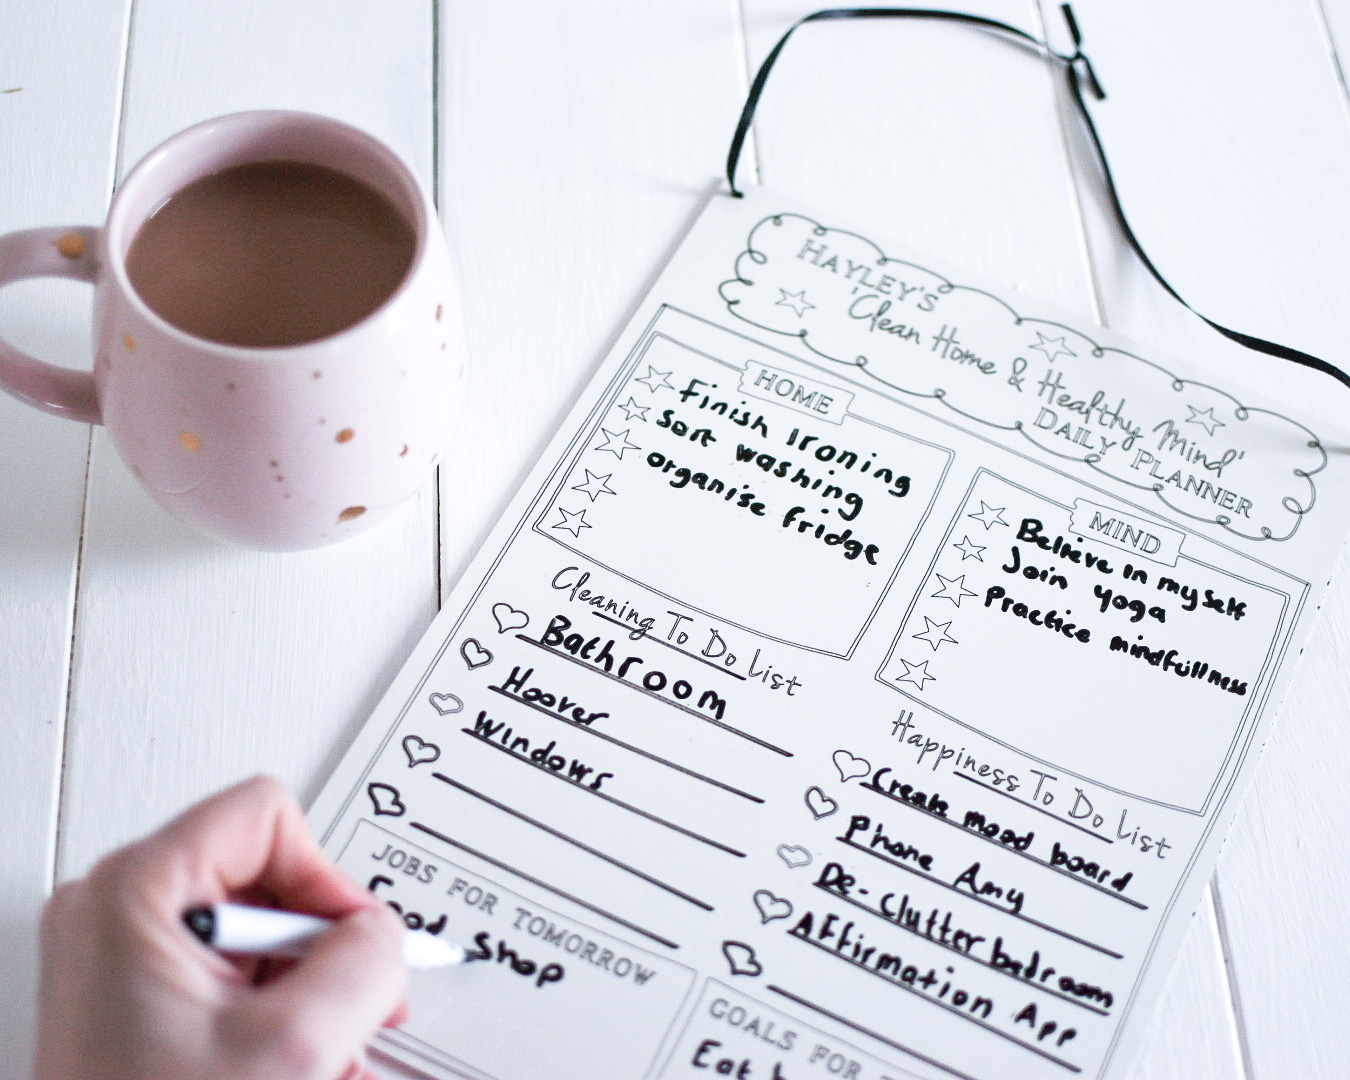 HAYLEY'S
'Clean Home & Healthy Mind'
DAILY PLANNER
HOME
Finish Ironing
Sort washing
organise fridge
MIND
Believe in myself
Join yoga
Practice mindfullness
Cleaning To Do List
Bathroom
Hoover
Windows
Happiness To Do List
Create mood board
Phone Amy
De-Clutter bedroom
Affirmation App
JOBS FOR TOMORROW
Food Shop
GOALS FOR
Eat